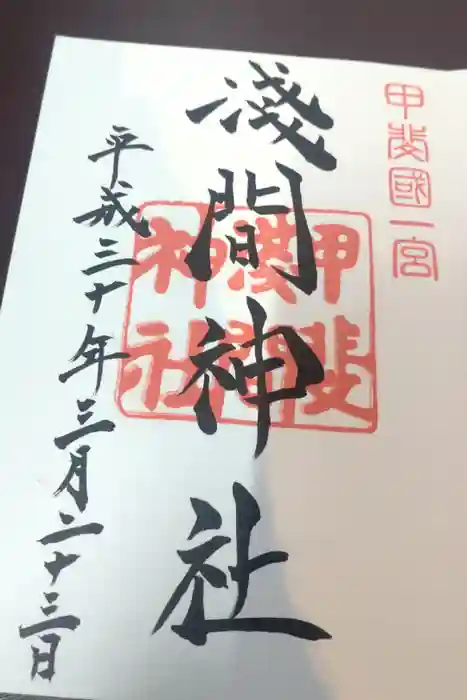 甲斐國一宮
淺間神社
甲斐
淺間
神社
平成三十年三月二十三日